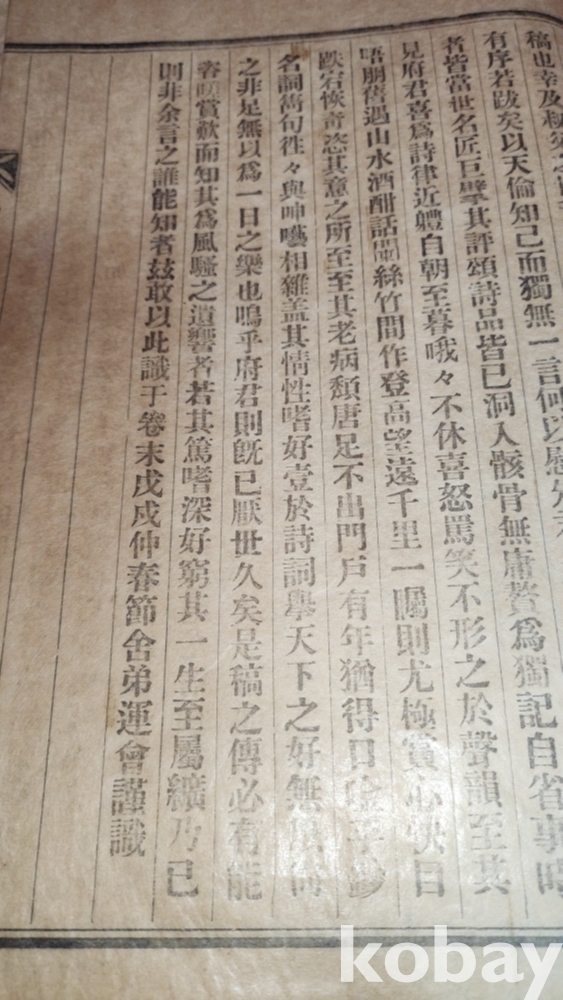 稿也幸及
有序若跋矣以天倫知己而獨無一言何以慰
者皆當世名匠巨擘其評頌詩品皆已洞入骸骨無庸贅焉獨記自省事時
見府君喜爲詩律近軆自朝至暮哦々不休喜怒罵笑不形之於聲韻至其
唔朋舊遇山水酒酣話闌絲竹間作登高望遠千里一矚則尤極賞心快目
跌宕恢奇恣其意之所至至其老病頹唐足不出門戶有年猶得口 手鈔
名詞雋句徃々與呻囈相雜盖其情性嗜好壹於詩詞擧天下之好無
之非足無以爲一日之樂也嗚乎府君則旣已厭世久矣是稿之傳必有能
賞歎而知其爲風騷之遺響者若其篤嗜深好窮其一生至屬纊乃已
則非余言之誰能知者玆敢以此識于卷末戊戌仲春節舍弟運會謹識
kobay